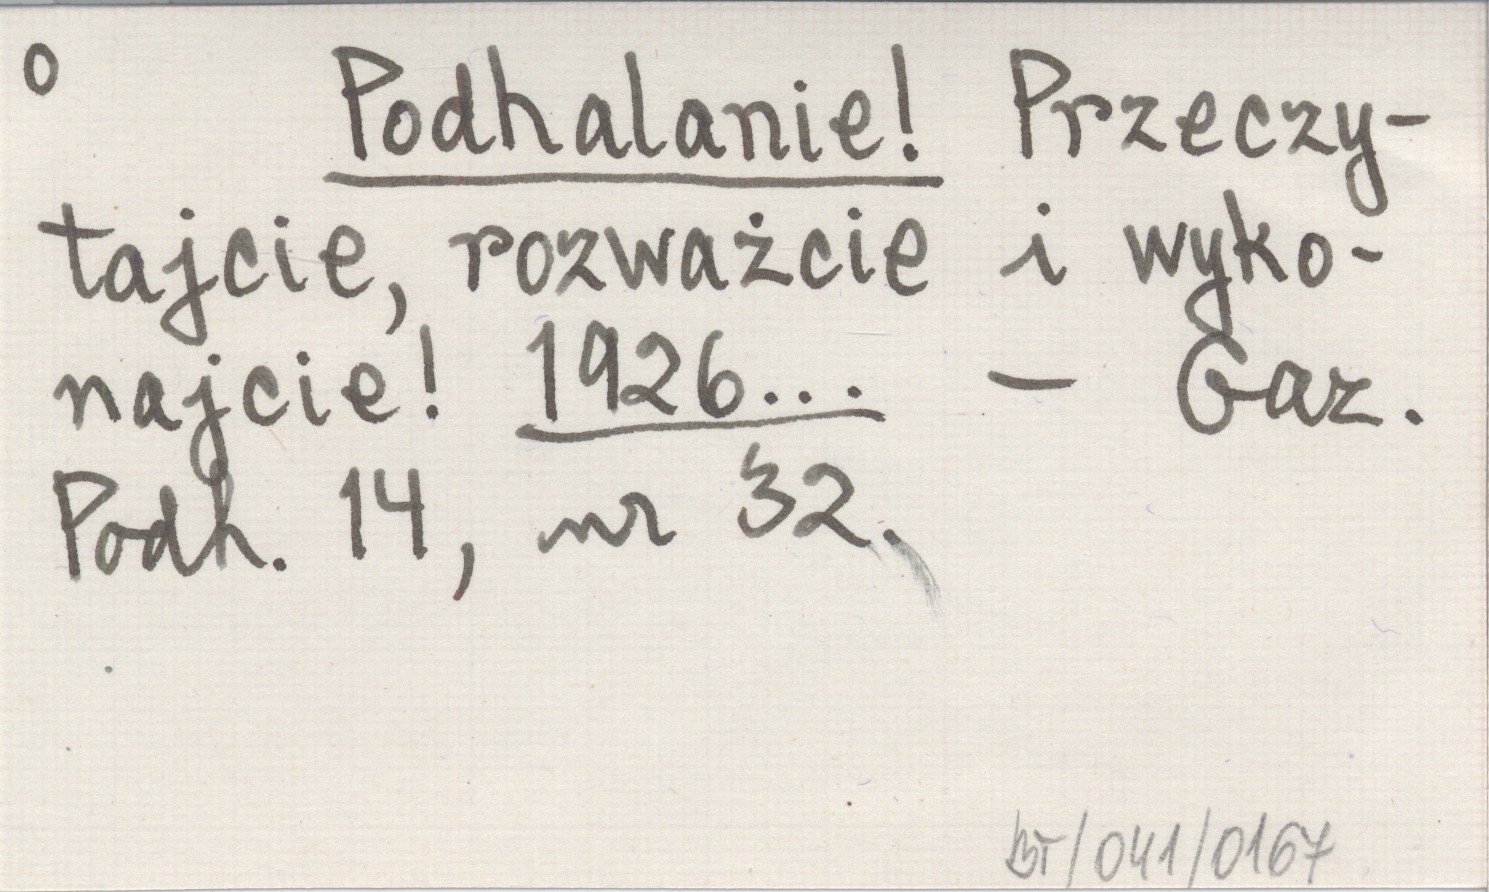 o Podhalanie! Przeczy-
tajcie, rozważcie i wyko-
najcie! 1926... – Gaz.
Podh. 14, nr 32.
BT/041/0167